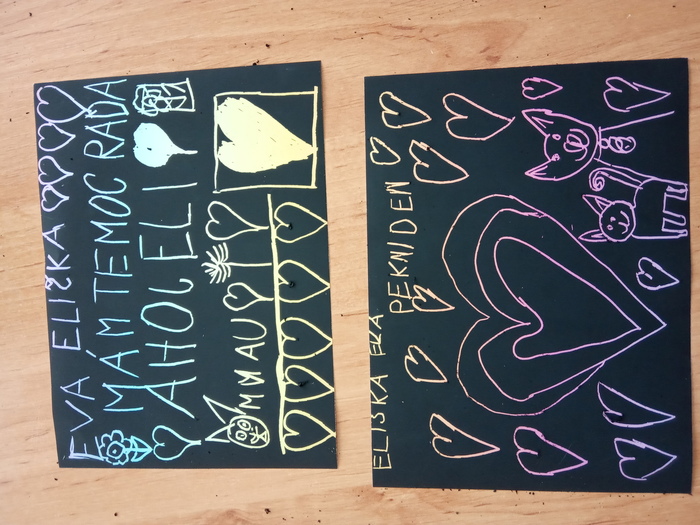 EVA ELIŠKA
MÁM TEMOC RADA
AHOJ ELI
MNAU
ELIŠKA EVA
PEKNI DEN